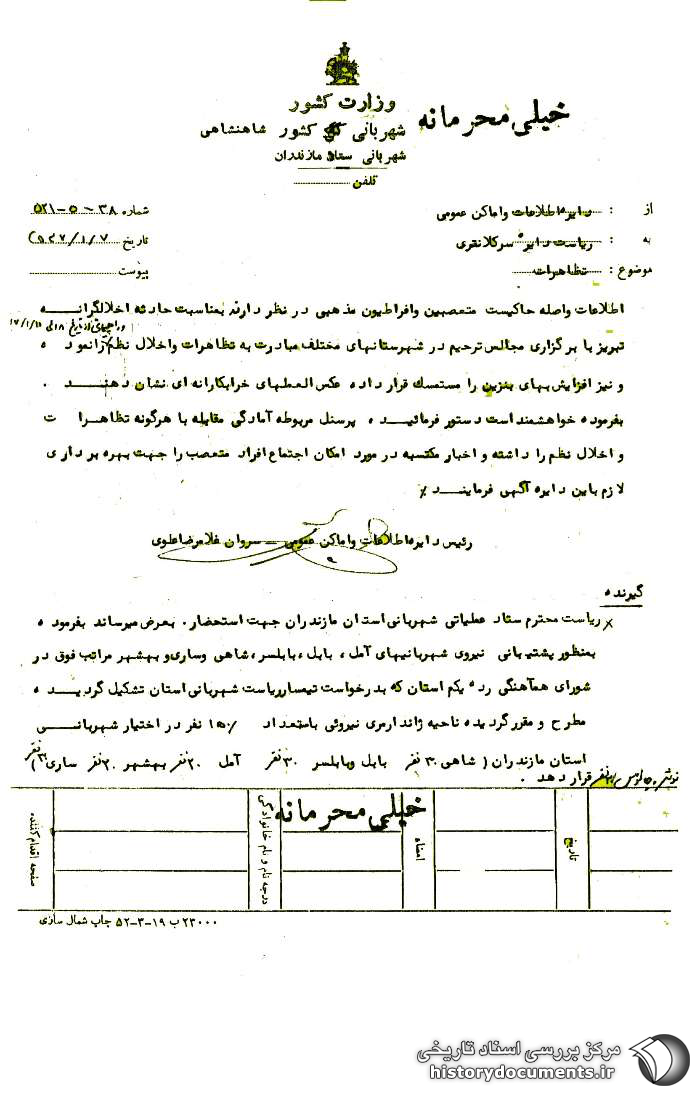 خیلی محرمانه
وزارت کشور
شهربانی کشور شاهنشاهی
شهربانی ستاد مازندران
تلفن
از : دایره اطلاعات واماکن عمومی
شماره ۳۸-۵-۵۲۱
به : ریاست دایره سرکلانتری
تاریخ
موضوع : تظاهرات
پیوست
اطلاعات واصله حاکیست متعصبین وافراطیون مذهبی در نظر دارند بمناسبت حادثه اخلالگرانه
تبریز با برگزاری مجالس ترحیم در شهرستانهای مختلف مبادرت به تظاهرات واخلال نظم نموده
و نیز افزایش بهای بنزین را مستمسك قرار داده عکس العملهای خرابکارانه ای نشان دهند .
بفرموده خواهشمند است دستور فرمائید پرسنل مربوطه آمادگی مقابله با هرگونه تظاهرات
و اخلال نظم را داشته و اخبار مکتسبه در مورد امکان اجتماع افراد متعصب را جهت بهره برداری
لازم باین دایره آگهی فرمایند ٪
رئیس دایره اطلاعات واماکن عمومی – سروان غلامرضا علوی
گیرنده
ریاست محترم ستاد عملیاتی شهربانی استان مازندران جهت استحضار . بعرض میرساند بفرموده
بمنظور پشتیبانی نیروی شهربانیهای آمل ، بابل ، بابلسر ، شاهی وساری و بهشهر مراتب فوق در
شورای هماهنگی رده یکم استان که بدرخواست تیمسار ریاست شهربانی استان تشکیل گردیده
مطرح و مقرر گردیده ناحیه ژاندارمری نیروئی باستعداد ۱۵۰ نفر در اختیار شهربانی
استان مازندران ( شاهی ۳۰ نفر بابل وبابلسر ۳۰ نفر آمل ۲۰ نفر بهشهر ۲۰ نفر ساری ۳۰ نفر
نوشهر و چالوس نفر ) قرار دهد .
خیلی محرمانه
صفحه اقدام کننده
درجه نام و نام خانوادگی
امضاء
تاریخ
۲۳۰۰۰ ب ۱۹-۳-۵۲ چاپ شمال ساری
مرکز بررسی اسناد تاریخی
historydocuments.ir